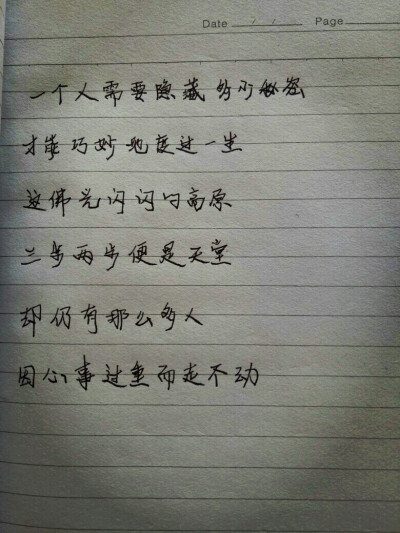 Date / / Page
一个人需要隐藏多少秘密
才能巧妙地度过一生
这佛光闪闪的高原
三步两步便是天堂
却仍有那么多人
因心事过重而走不动